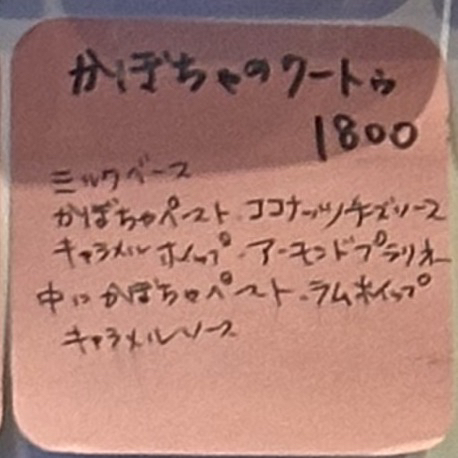 かぼちゃのクートゥ
1800
ミルクベース
かぼちゃペースト、ココナッツチーズソース
キャラメルホイップ、アーモンドプラリネ
中にかぼちゃペースト、ラムホイップ
キャラメルソース